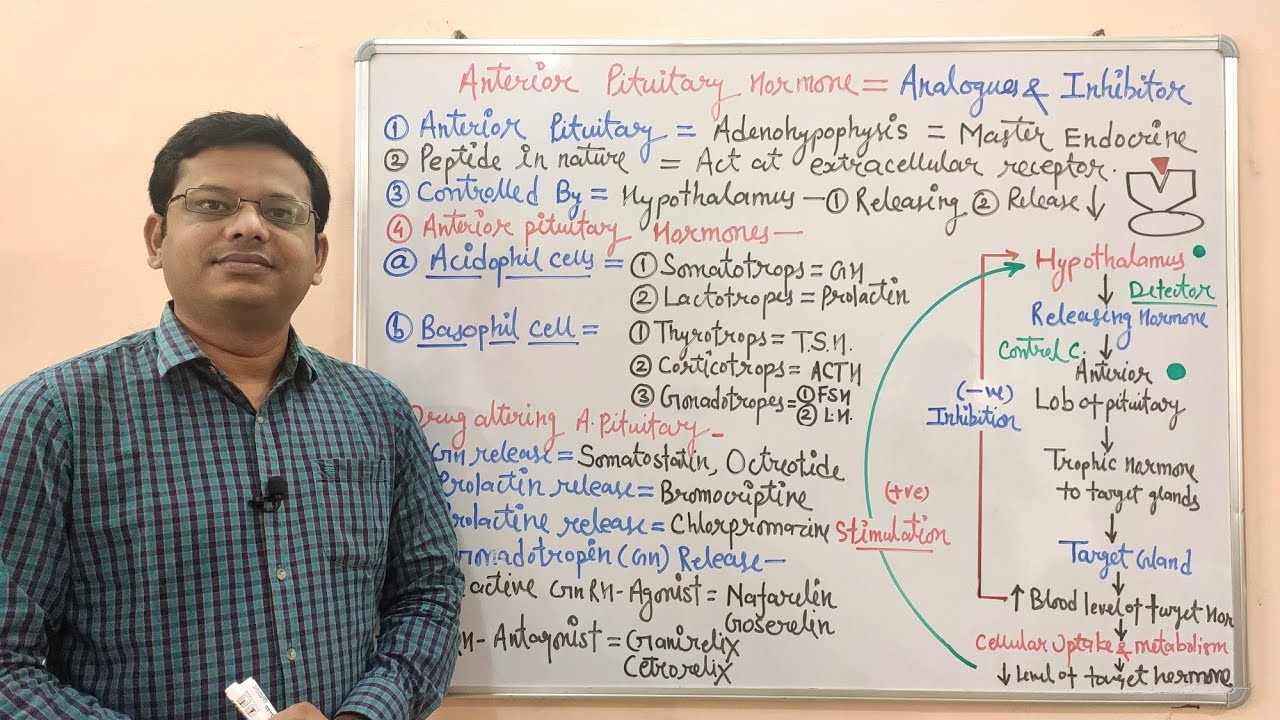 Anterior Pituitary Hormone = Analogues & Inhibitor
① Anterior Pituitary = Adenohypophysis = Master Endocrine
② Peptide in nature = Act at extracellular receptor.
③ Controlled By = Hypothalamus — ① Releasing ② Release ↓
④ Anterior pituitary Hormones —
ⓐ Acidophil cells = ① Somatotrops = GH
② Lactotropes = Prolactin
ⓑ Basophil cell = ① Thyrotrops = T.S.H.
② Corticotrops = ACTH
③ Gonadotropes = ① FSH
② LH.
Drug altering A. Pituitary –
GH release = Somatostatin, Octreotide
Prolactin release = Bromocriptine
Prolactine release = Chlorpromazine
Gonadotropin (GH) Release —
active GnRH-Agonist = Nafarelin
Goserelin
RH- Antagonist = Ganirelix
Cetrorelix
Hypothalamus
↓ Detector
Releasing Hormone
Control C. ↓
Anterior
Lob of pituitary
↓
Trophic Hormone
to target glands
↓
Target Gland
↓
↑ Blood level of target Hor
↓
Cellular Uptake & metabolism
↓ Level of target hormone
(-ve)
Inhibition
(+ve)
Stimulation